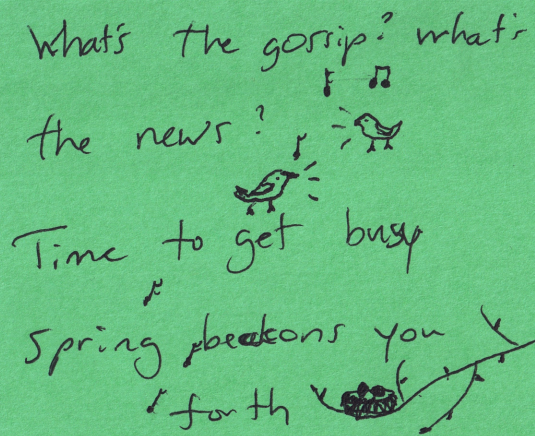 What's the gossip? what's
the news?
Time to get busy
Spring beckons you
forth